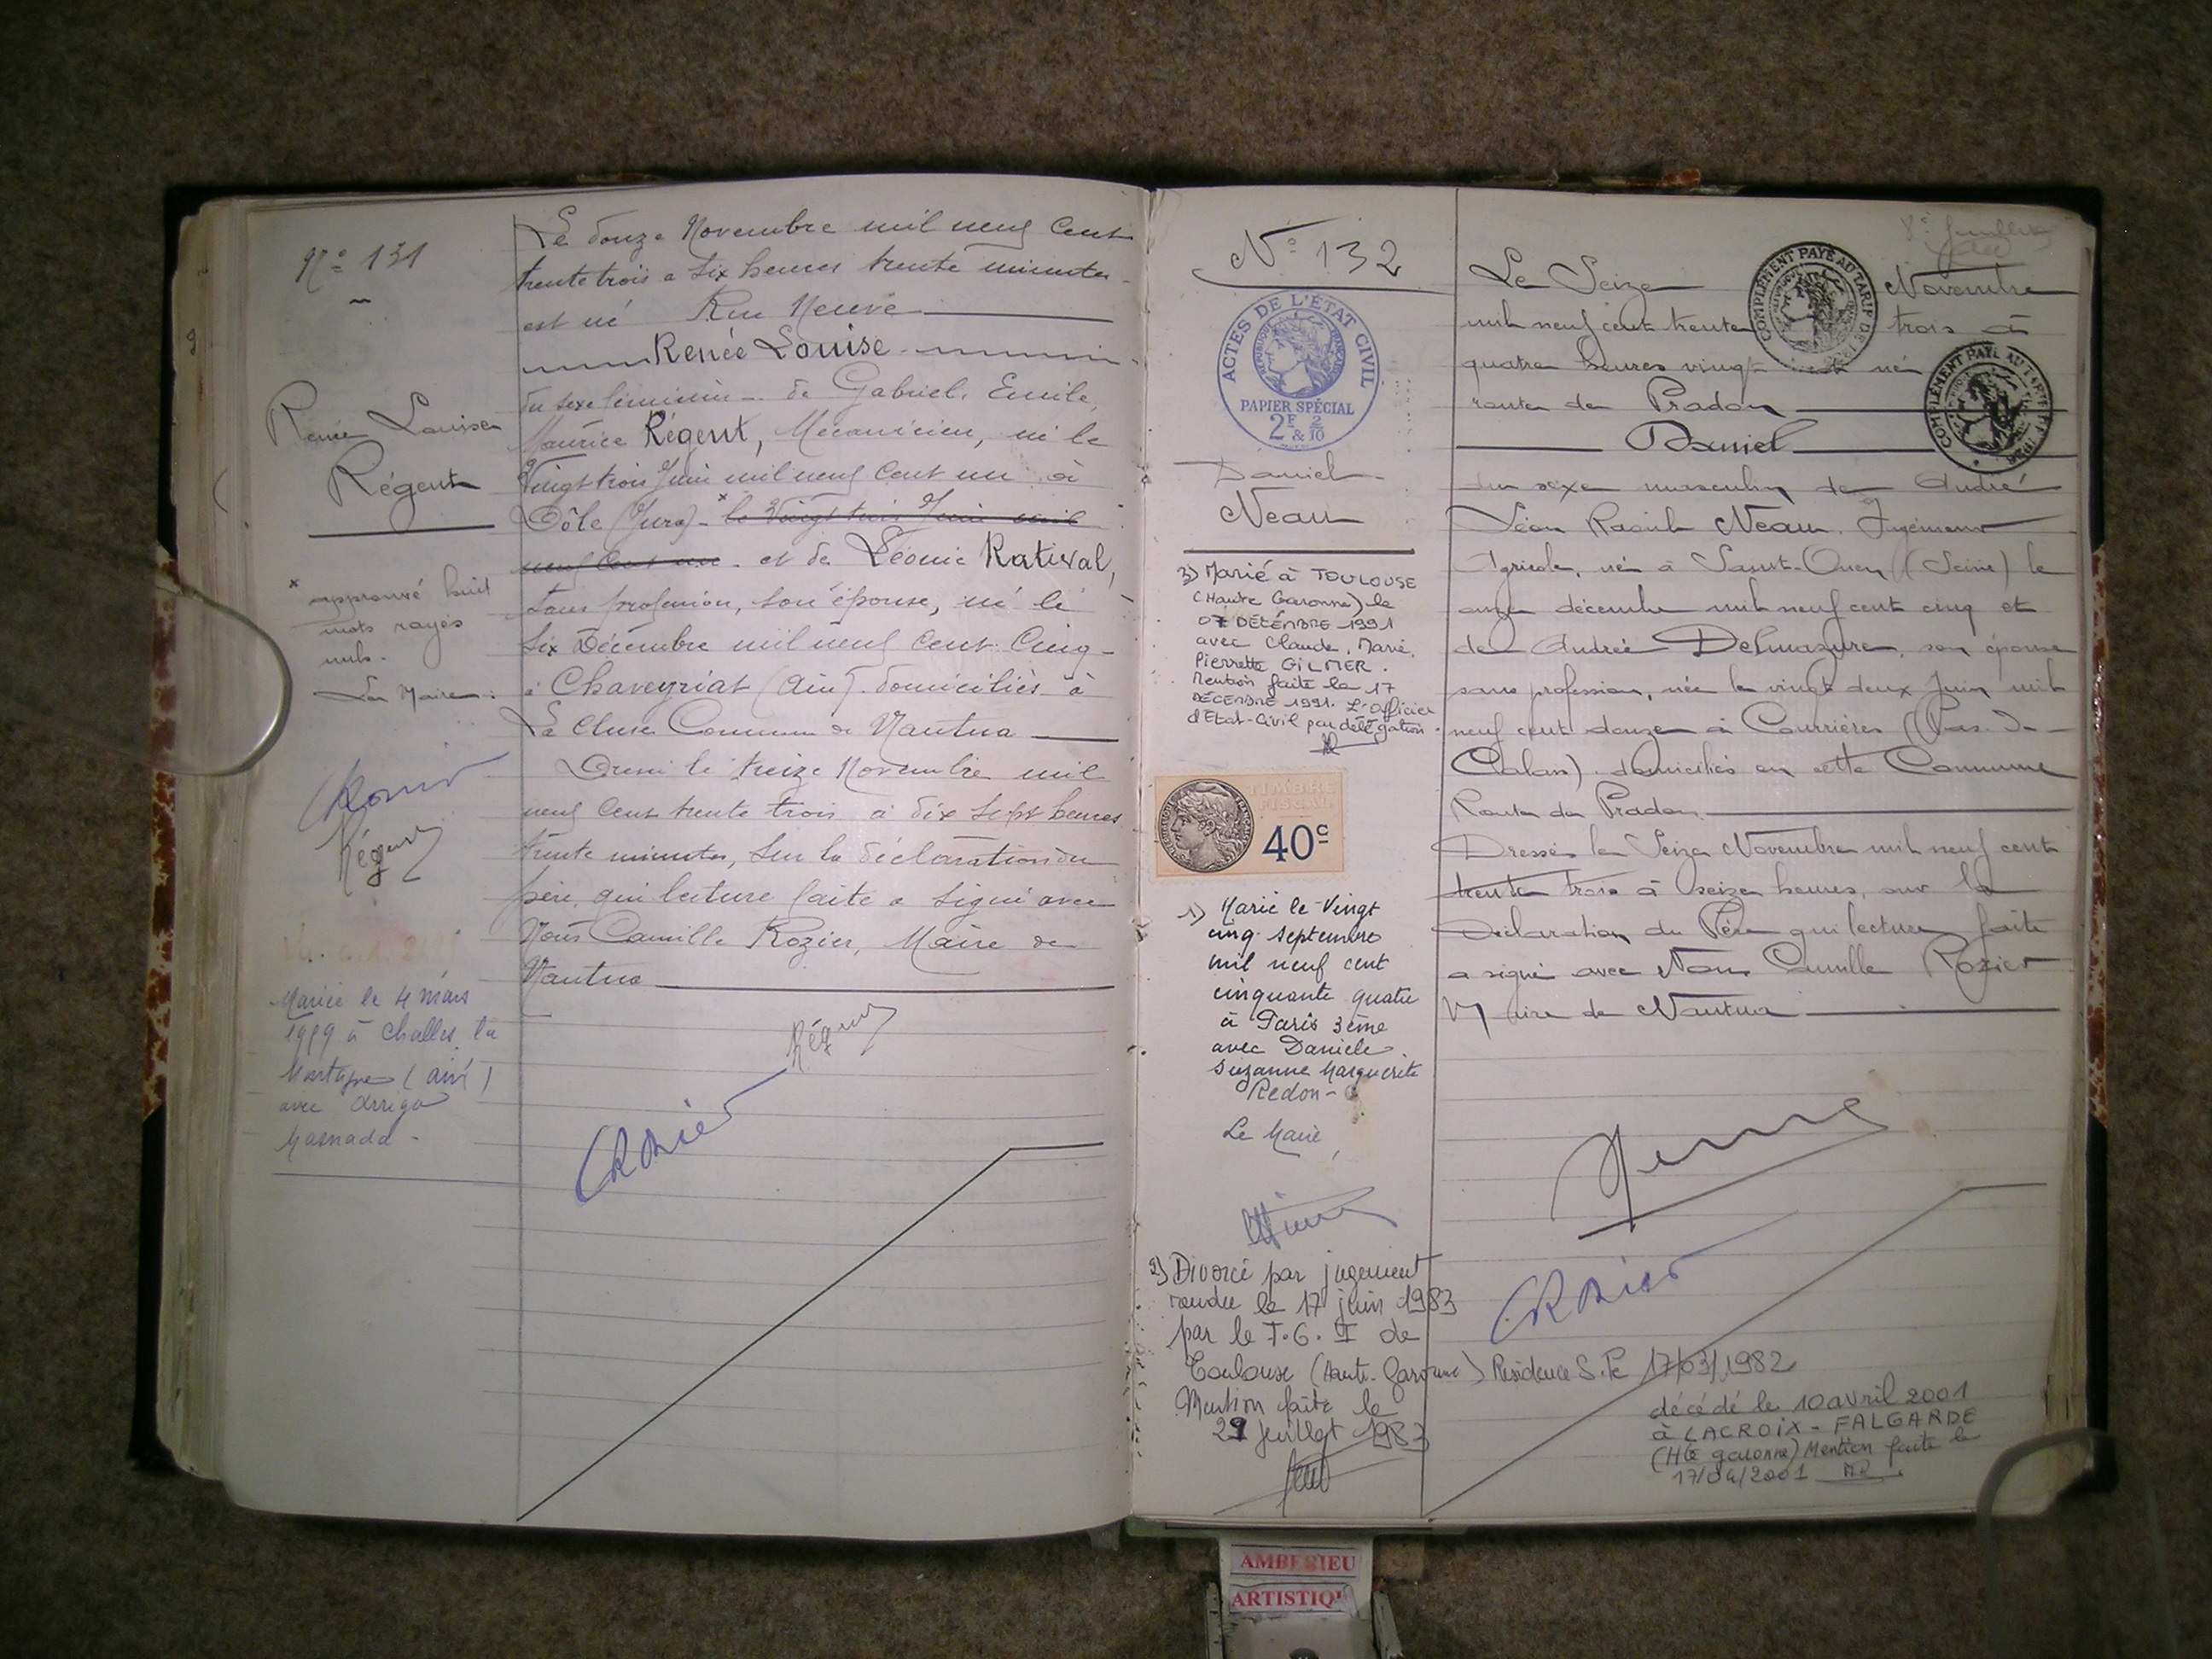 N° 131
Renée Louise
Régent
approuvé huit
mots rayés
nuls.
Le Maire :
CRozier
Régent
Mariée le 4 mars
à Challes la
Montagne (ain)
avec Arrigo
Masnada -
Le douze Novembre mil neuf Cent
trente trois a six heures trente minutes
est né Rue Neuve
Renée Louise
du sexe féminin de Gabriel, Emile,
Maurice Régent, Mécanicien, né le
Vingt trois Juin mil neuf Cent un à
Dôle (Jura) - le Vingt trois Juin mil
neuf Cent un. et de Léonie Rativat,
sans profession, son épouse, né le
six Décembre mil neuf Cent Cinq
à Chaveyriat (Ain) domiciliés à
La Cluse Commune de Nantua
Dressé le treize Novembre mil
neuf Cent trente trois à dix sept heures
trente minutes, sur la déclaration du
père, qui lecture faite a signé avec
Nous Camille Rozier, Maire de
Nantua
Régent
CRozier
N° 132
ACTES DE L'ÉTAT CIVIL
PAPIER SPÉCIAL
2F & 2/10
Daniel
Neau
3) Marié à TOULOUSE
(Haute Garonne) le
07 DÉCEMBRE 1991
avec Claude, Marie,
Pierrette GILMER.
Mention faite le 17
DÉCEMBRE 1991. L'Officier
d'Etat-Civil par délégation.
TIMBRE
FISCAL
40c
1) Marié le Vingt
cinq septembre
mil neuf cent
cinquante quatre
à Paris 3ème
avec Daniele
Suzanne Marguerite
Redon -
Le Maire,
2) Divorcé par jugement
rendu le 17 juin 1983
par le T.G.I de
Toulouse (Haute-Garonne) Résidence S.Pe 17/03/1982
Mention faite le
29 Juillet 1983
Le Seize Novembre
mil neuf cent trente trois à
quatre heures vingt est né
route de Pradon
Daniel
du sexe masculin de André
Léon Raoul Neau, Ingénieur
Agricole, né à Saint-Ouen (Seine) le
onze décembre mil neuf cent cinq et
de Andrée Delmazure, son épouse
sans profession, née le vingt deux Juin mil
neuf cent douze à Courrières (Pas-de-
Calais). domiciliés en cette Commune
Route de Pradon
Dressé le Seize Novembre mil neuf cent
trente trois à seize heures, sur la
déclaration du Père qui lecture faite
a signé avec Nous Camille Rozier
Maire de Nantua
COMPLÉMENT PAYÉ AU TARIF DE
COMPLÉMENT PAYÉ AU TARIF DE
CRozier
décédé le 10 avril 2001
à LACROIX-FALGARDE
(Hte garonne) Mention faite le
17/04/2001
AMBERIEU
ARTISTIQ